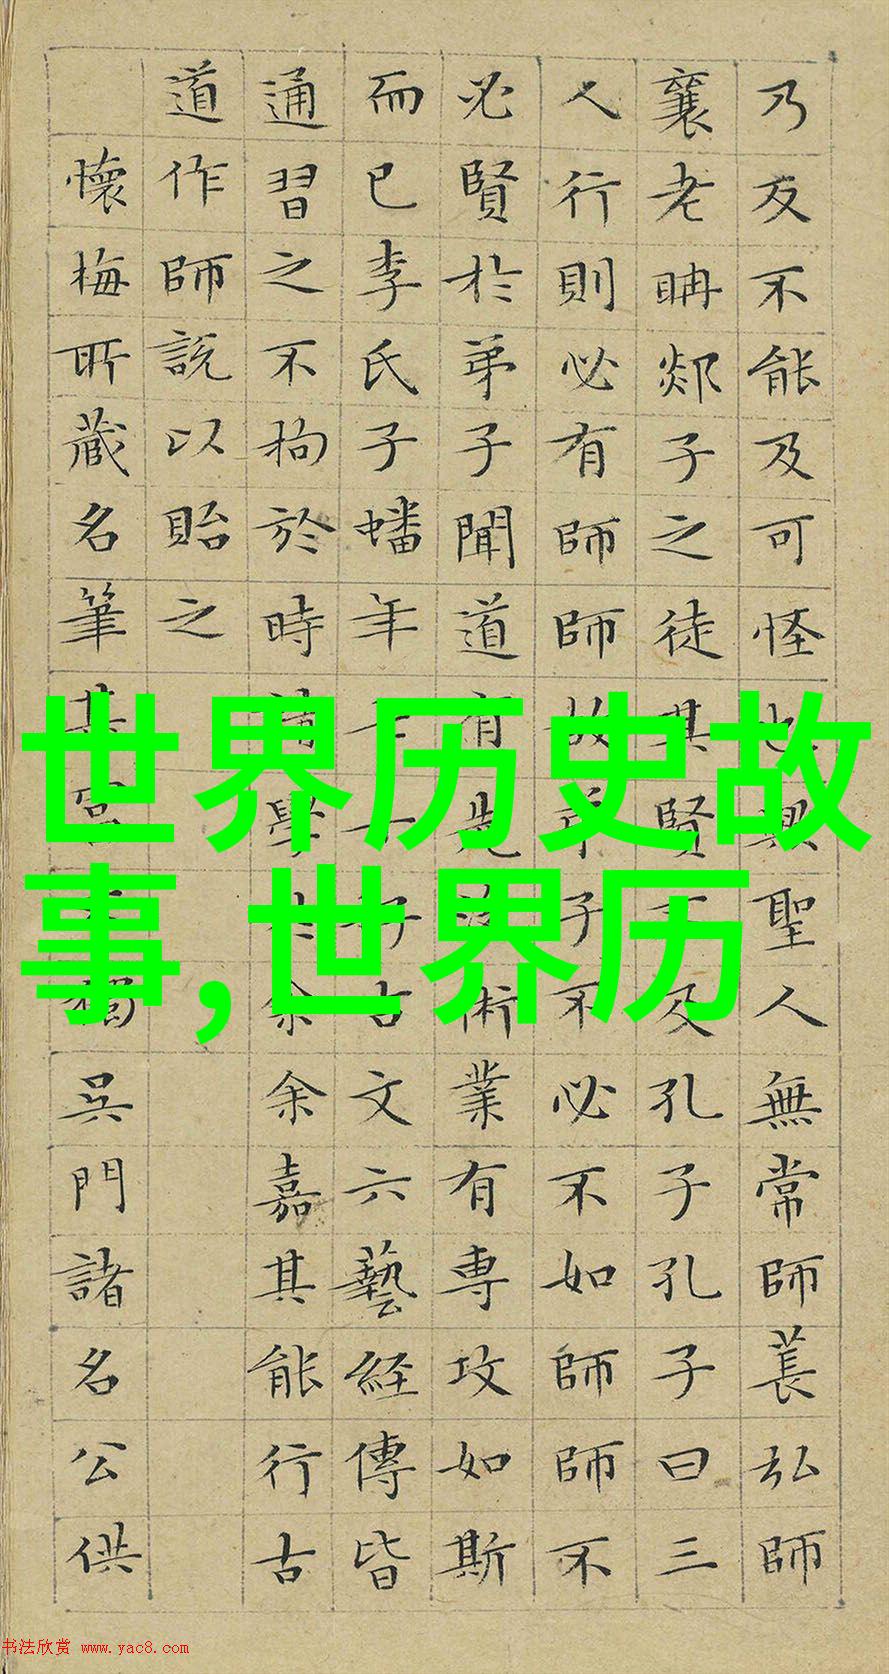 世界历史故
事,世界历
乃反不能及可怪也聖人無常師萇弘師
襄老聃郯子之徒其賢不及孔子孔子曰三
人行則必有師師故子不必不如師師不
必賢於弟子聞道有先後術業有專攻如斯
而已李氏子蟠年十七好古文六藝經傳皆
通習之不拘於時請學於余余嘉其能行古
道作師說以貽之
懷梅所藏名筆其富獨吳門諸名公供
书法欣赏 www.yac8.com